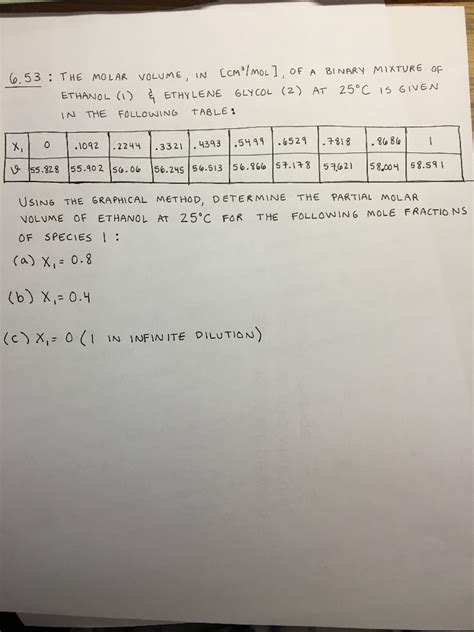 6.53 : THE MOLAR VOLUME, IN [CM³/MOL], OF A BINARY MIXTURE OF
ETHANOL (1) & ETHYLENE GLYCOL (2) AT 25°C IS GIVEN
IN THE FOLLOWING TABLE:
X₁ 0 .1092 .2244 .3321 .4393 .5499 .6529 .7818 .8686 1
v 55.828 55.902 56.06 56.245 56.513 56.866 57.178 57.621 58.004 58.591
USING THE GRAPHICAL METHOD, DETERMINE THE PARTIAL MOLAR
VOLUME OF ETHANOL AT 25°C FOR THE FOLLOWING MOLE FRACTIONS
OF SPECIES 1 :
(a) X₁ = 0.8
(b) X₁ = 0.4
(c) X₁ = 0 (1 IN INFINITE DILUTION)